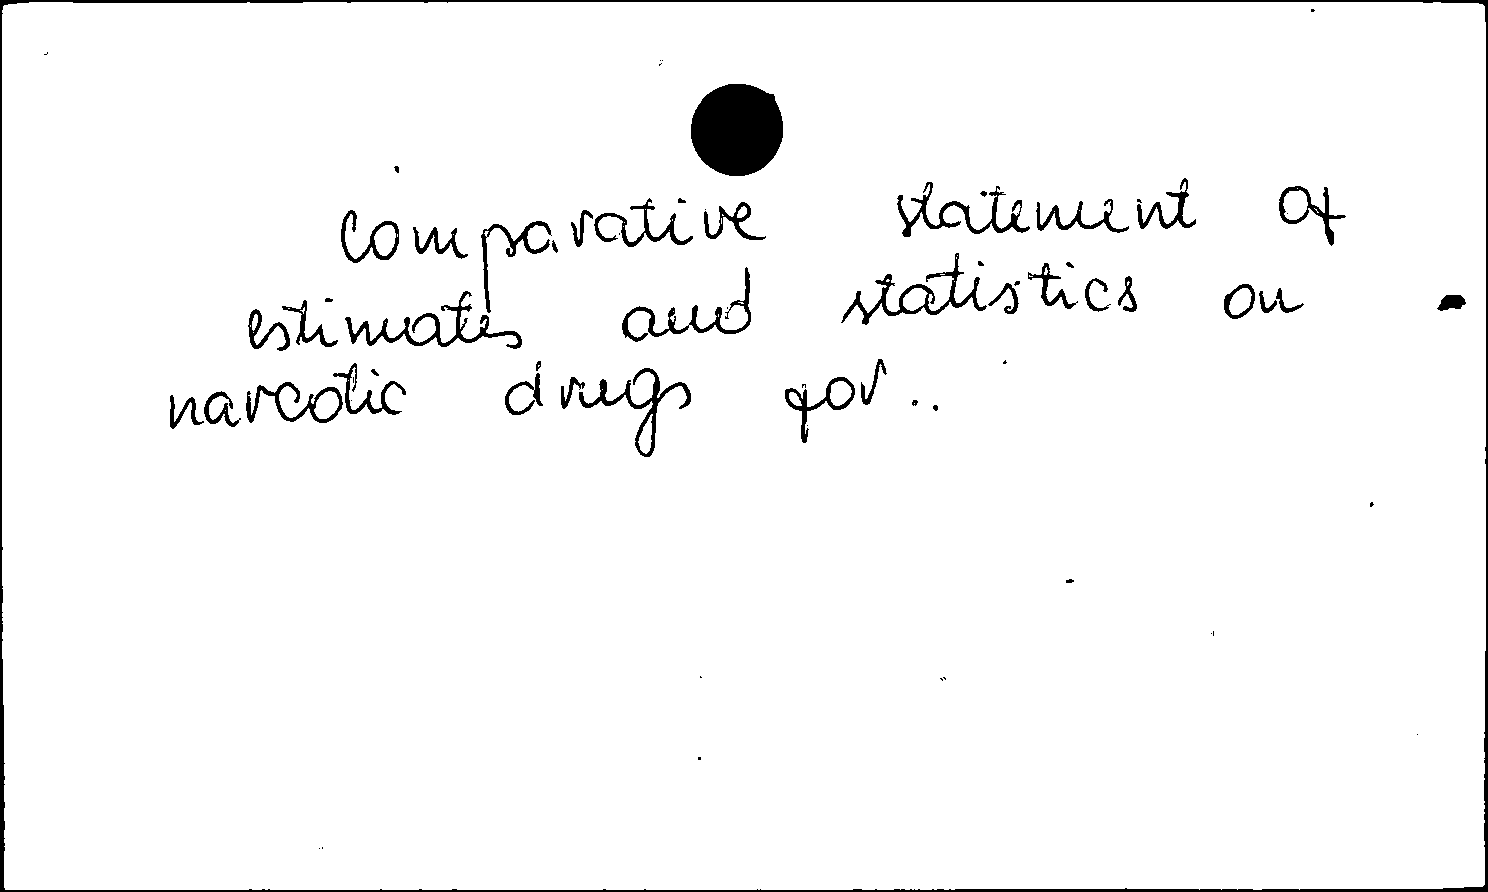 Comparative statement of
estimates and statistics on
narcotic drugs for..